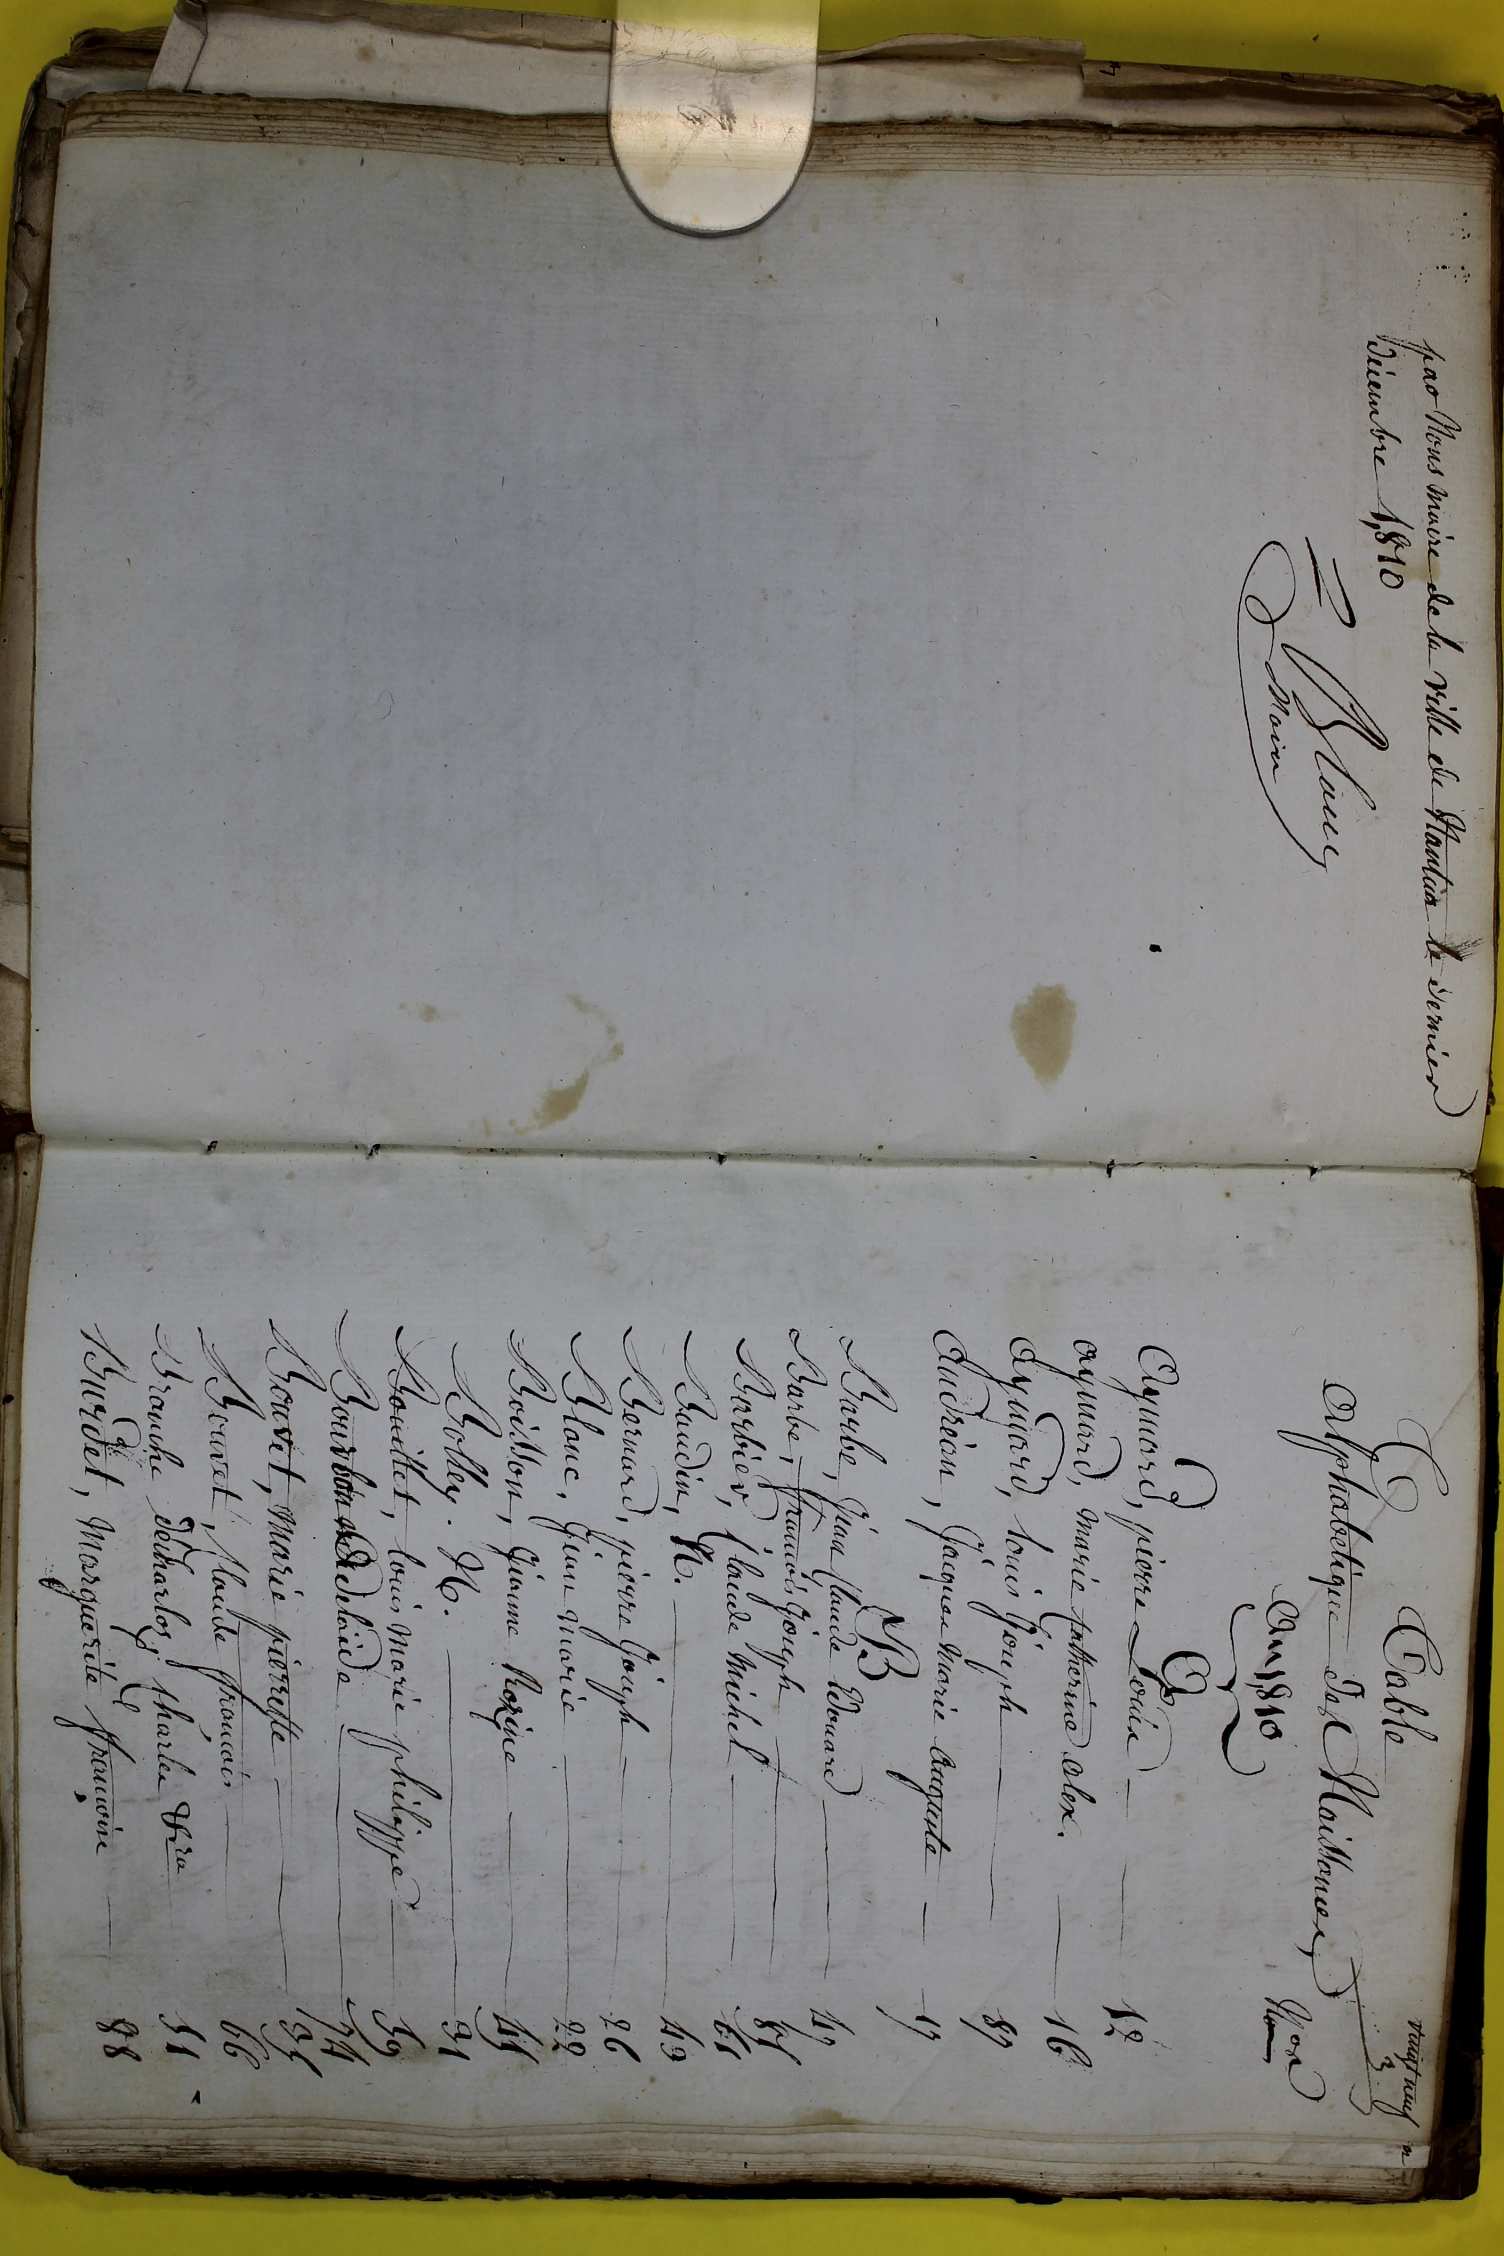 par Nous maire de la ville de Nantua le dernier
Décembre 1,810
Maire
vingt neuf
Table
Alphabétique des Naissances,
An 1,810
Nos
A
Aymard, pierre Louis 12
aymard, marie Catherine alex. 16
Aymard, louis Joseph 87
Audréan, Jacques Marie Auguste 17
B
Barbe, Jean Claude Edouard 47
Barbe, françois Joseph 81
Barbier, Claude Michel 61
Baudin, N. 43
Bernard, pierre Joseph 26
Blanc, Jean Marie 22
Boisson, Jeanne Rozine 45
Bolley. N. 91
Bouillet, louis Marie philippe 59
Bourbon Adelaïde 74
Bouvet, Marie pierrette 35
Bouvet, Claude françois 66
Branche Charles 51
Burdet, Marguerite françoise 88